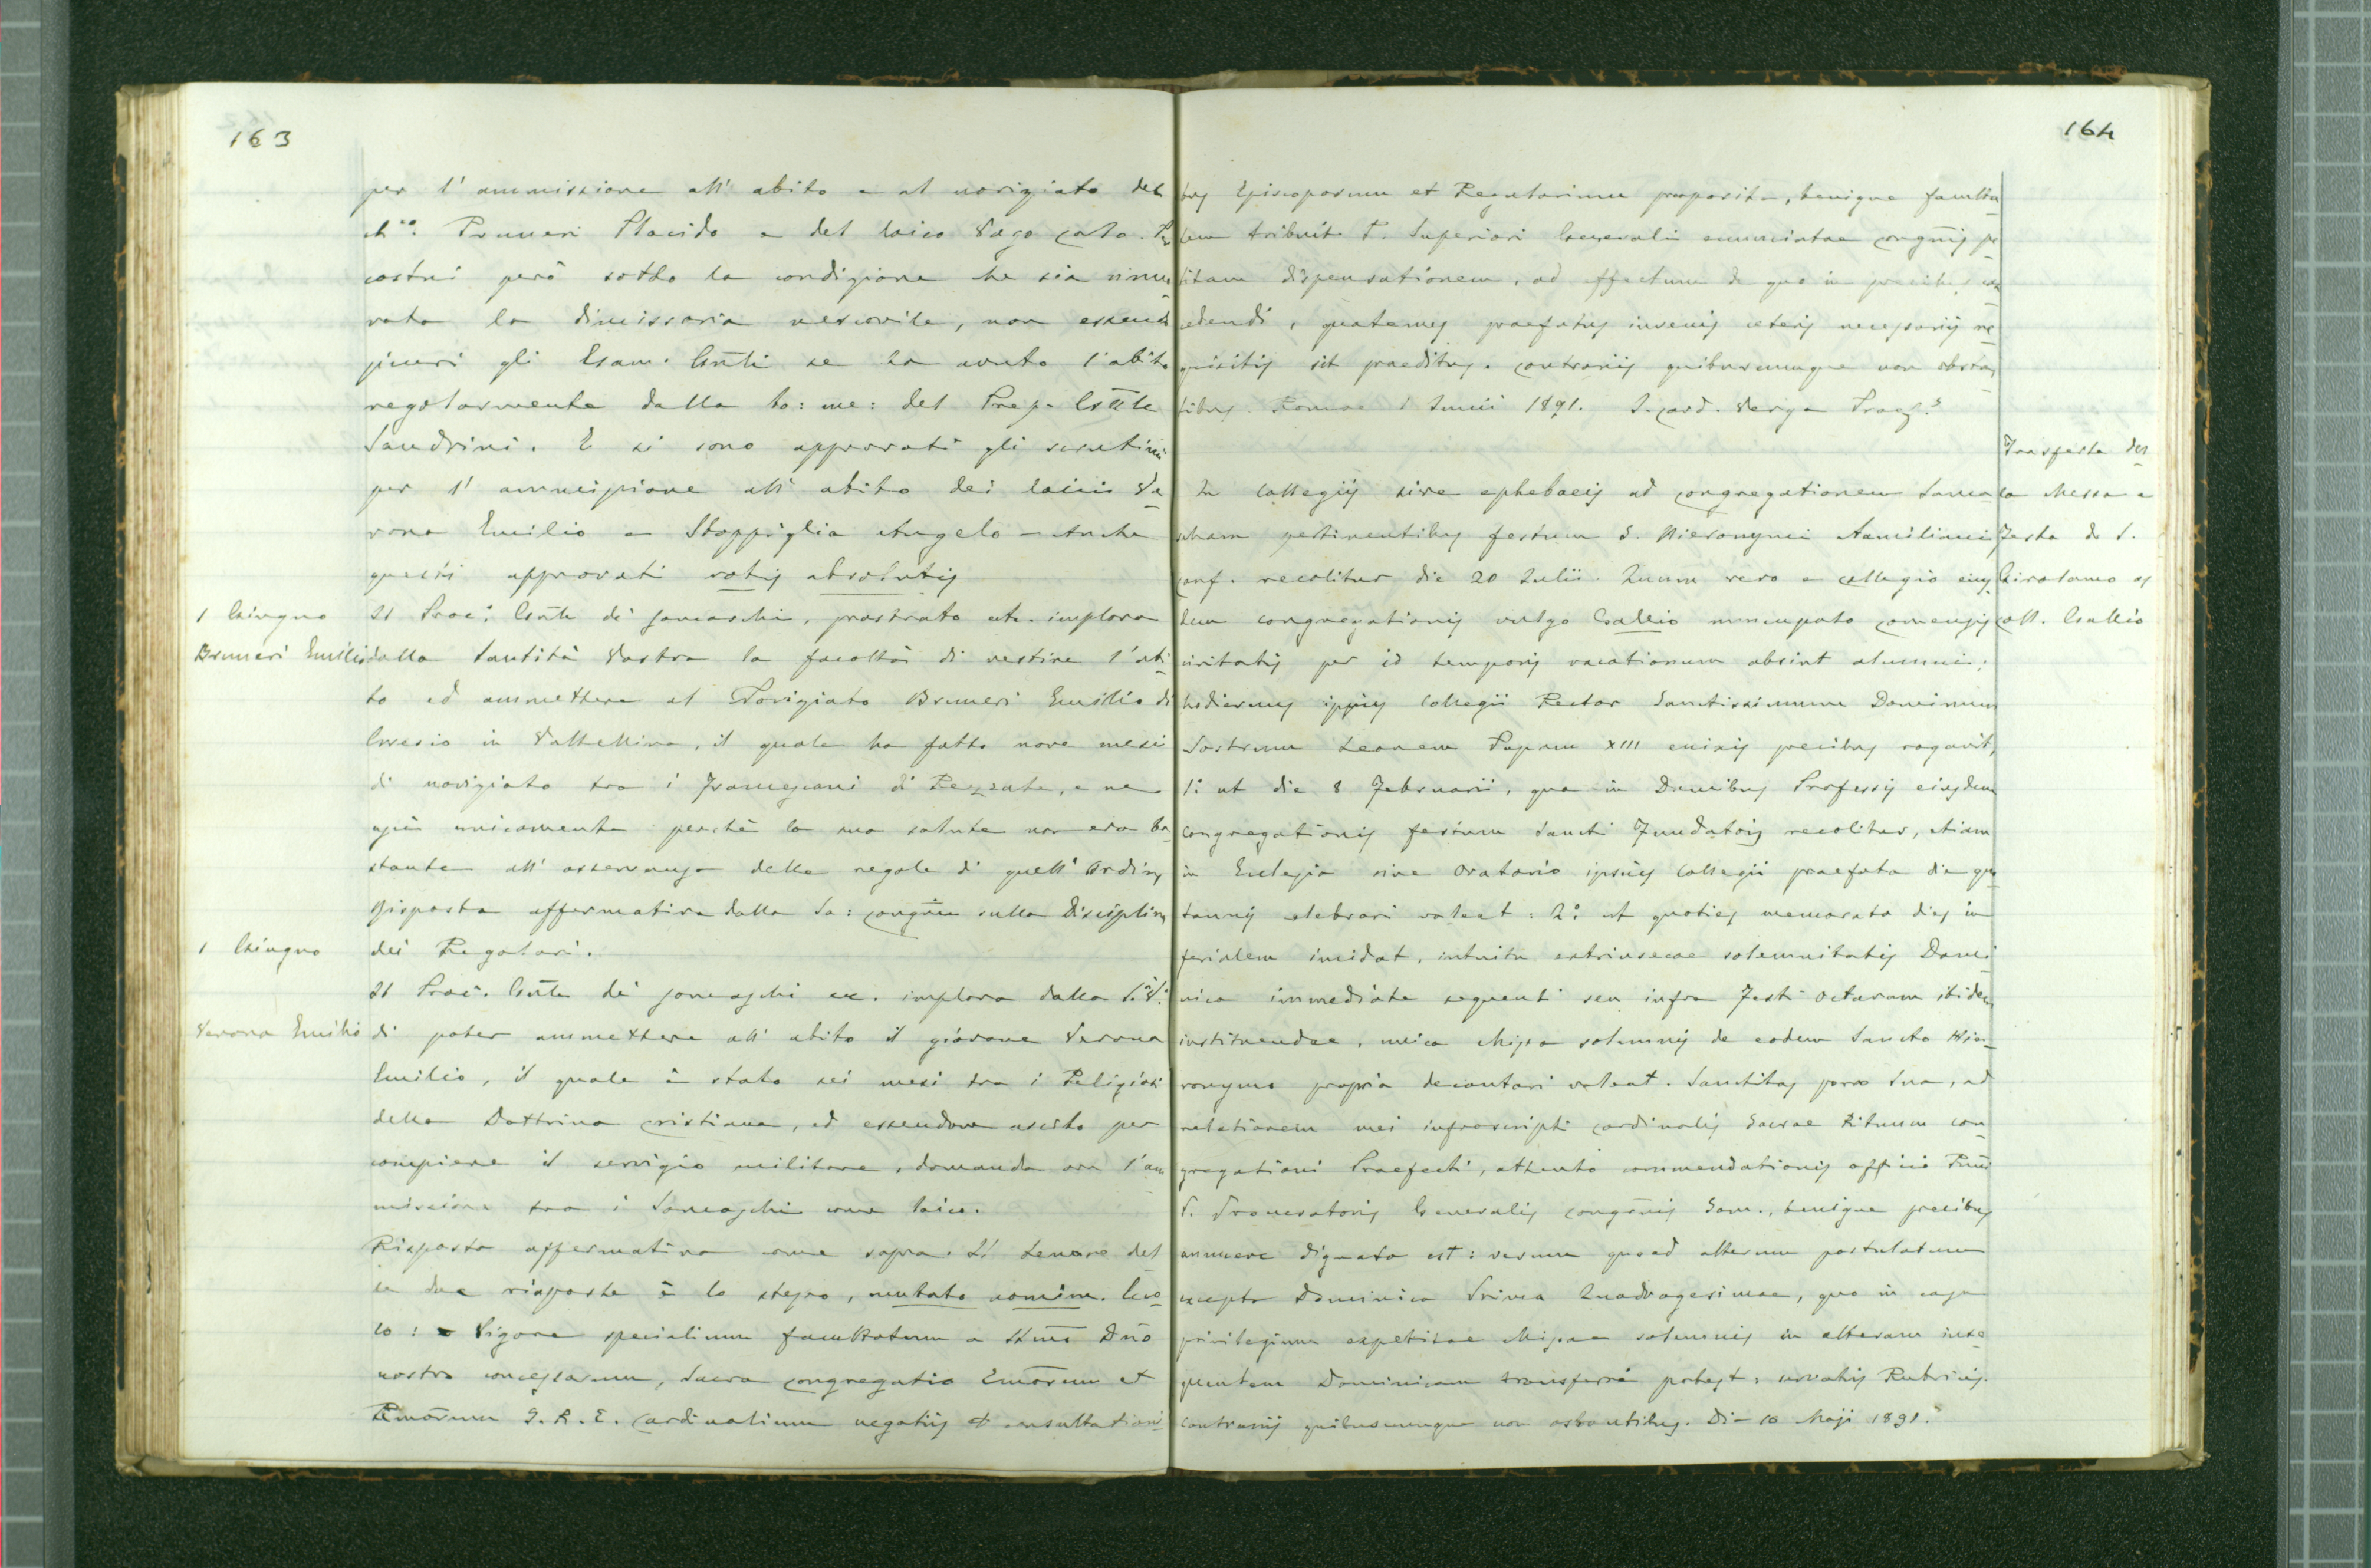 163
per l'ammissione all'abito e al novigiato del
ch.co Prumeri Placido e del laico Vago Carlo. Per
costui però sotto la condizione che sia rinno
vata la dimissoria vescovile, non essend
sicuri gli Esam. Gnti se ha avuto l'abito
regolarmente dalla bo: me: del Prep. Gnle
Sandrini. E si sono approvati gli scrutini
per l'ammissione all'abito dei laici Ve
rona Emilio e Stoppiglia Angelo – Anche
questi approvati votis absolutis
1 Giugno
Il Proc. Gnle dei Somaschi, prostrato etc. implora
Brumeri Emilio
dalla Santità Vostra la facoltà di vestire l'abi
to ed ammettere al Novigiato Brumeri Emilio di
Grosio in Valtellina, il quale ha fatto nove mesi
di novigiato tra i Francescani di Rezzato, e ne
uscì unicamente perchè la sua salute non era ba
stante all'osservanza delle regole di quell'Ordine
Risposta affermativa dalla Sa: Congne sulla Disciplina
1 Giugno
dei Regolari.
Il Proc. Gnle dei Somaschi ec. implora dalla S. V.
Verona Emilio
di poter ammettere all'abito il giovane Verona
Emilio, il quale è stato sei mesi tra i Religiosi
della Dottrina cristiana, ed essendone uscito per
compiere il servigio militare, domanda ora l'am
missione tra i Somaschi come laico.
Risposta affermativa come sopra. Il tenore del
le due risposte è lo stesso, mutato nomine. Ecco
lo: Vigore specialium facultatum a SSmo Dno
nostro concessarum, Sacra Congregatio Emorum et
Rmorum S. R. E. Cardinalium negotiis et consultationi
164
bus Episcoporum et Regularium praeposita, benigne faculta
tem tribuit P. Superiori Generali enunciatae Congnis pe
titam dispensationem, ad effectum de quo in precibus con
cedendi, quatenus praefatus iuvenis ceteris necessariis re
quisitis sit praeditus. Contrariis quibuscumque non obstan
tibus. Romae 1 Junii 1891. I. Card. Verga Praef.s
Trasferta del
In Collegiis sive ephebaeis ad Congregationem Somas
la Messa e
cham pertinentibus festum S. Hieronymi Aemiliani
Festa di S.
Conf. recolitur die 20 Julii. Quum vero e Collegio eius
Girolamo al
dem Congregationis vulgo Gallio nuncupato Comensis
Coll. Gallio
civitatis per id temporis vacationum absint alumni;
hodiernus ipsius Collegii Rector Sanctissimum Dominum
Nostrum Leonem Papam XIII enixis precibus rogavit,
1° ut die 8 Februarii, qua in Domibus Professis eiusdem
Congregationis festum Sancti Fundatoris recolitur, etiam
in Ecclesia sive Oratorio ipsius Collegii praefata die quo
tannis celebrari valeat: 2° ut quoties memorata dies in
ferialem incidat, intuitu extrinsecae solemnitatis Domi
nica immediate sequenti seu infra Festi Octavam ibidem
instituendae, unica Missa solemnis de eodem Sancto Hie
ronymo propria decantari valeat. Sanctitas porro Sua, ad
relationem mei infrascripti Cardinalis Sacrae Rituum Con
gregationi Praefecti, attento commendationis officio Rmi
P. Procuratoris Generalis Congnis Som., benigne precibus
annuere dignata est: verum quoad alterum postulatum
excepta Dominica Prima Quadragesimae, quo in casu
privilegium expetitae Missae solemnis in alteram inse
quentem Dominicam transferri potest: servatis Rubricis.
Contrariis quibuscumque non obstantibus. Die 10 Maji 1891.